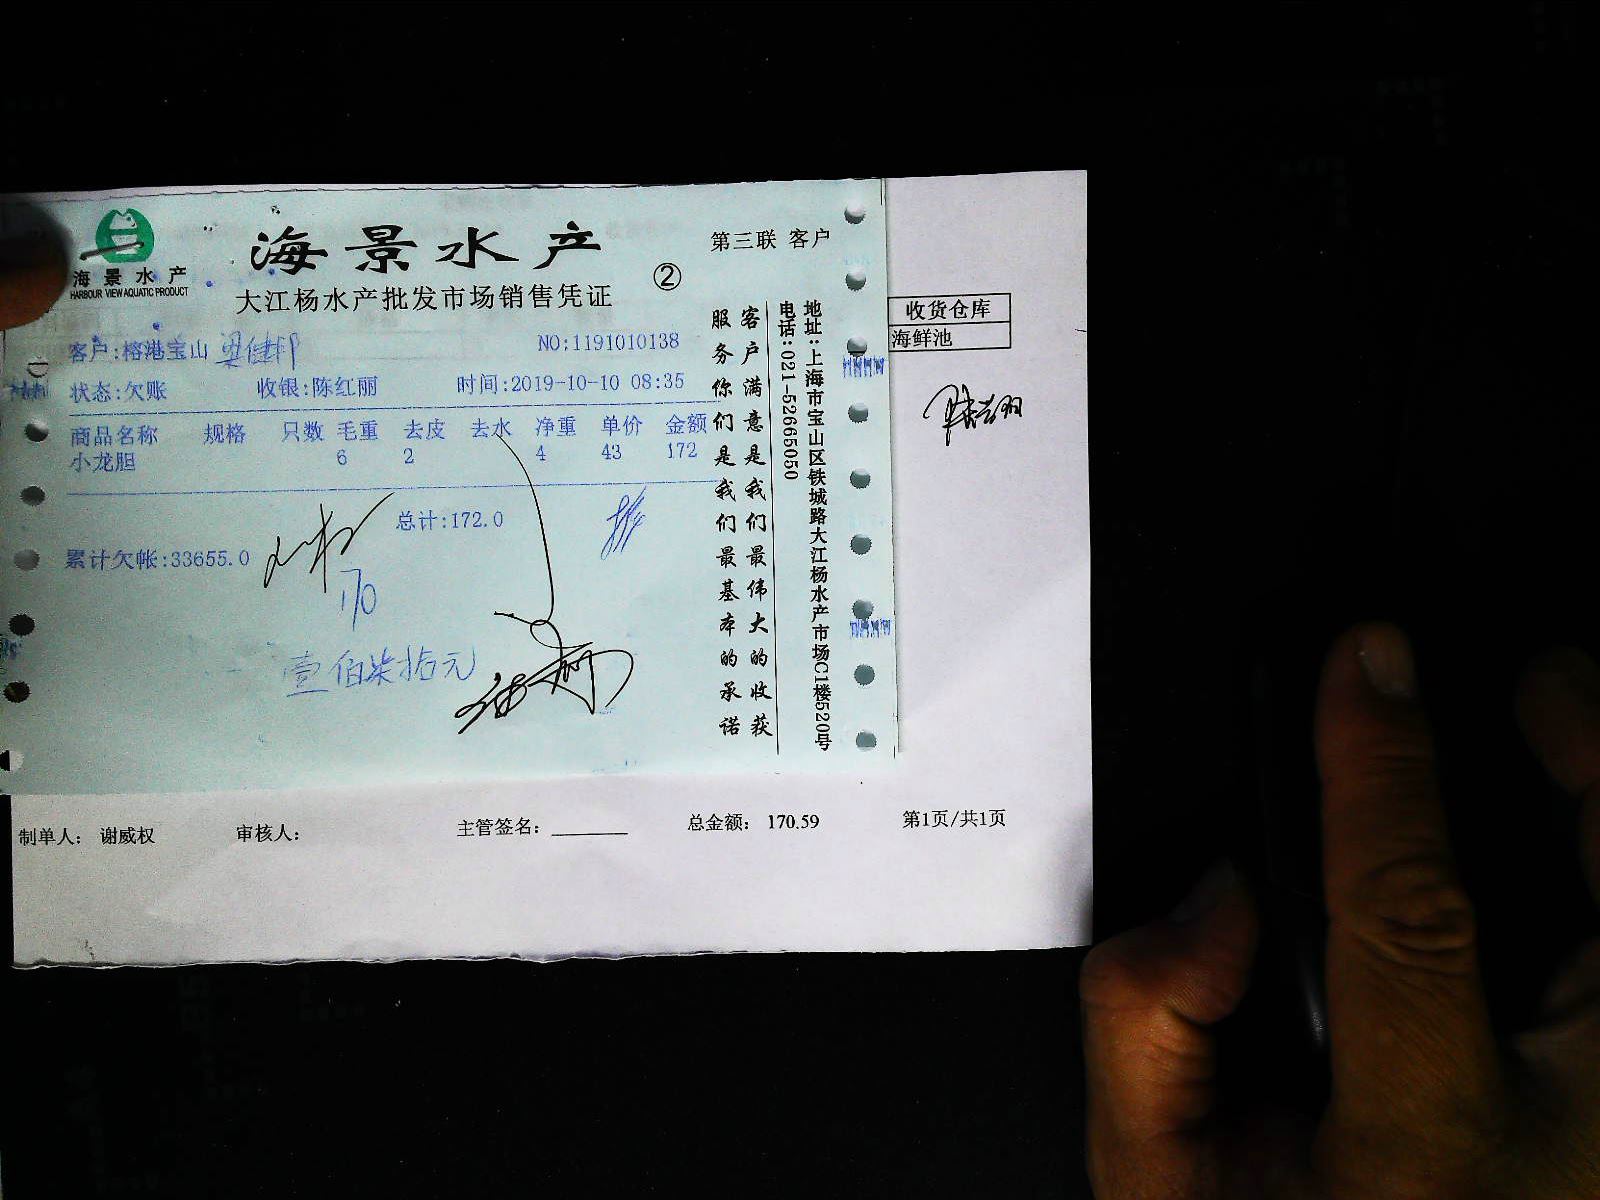 海景水产
HARBOUR VIEW AQUATIC PRODUCT
海景水产
大江杨水产批发市场销售凭证
②
第三联 客户
客户:榕港宝山
NO:1191010138
状态:欠账 收银:陈红丽 时间:2019-10-10 08:35
商品名称 规格 只数 毛重 去皮 去水 净重 单价 金额
小龙胆 6 2 4 43 172
总计:172.0
累计欠帐:33655.0
170
壹佰柒拾元
客户满意是我们最伟大的收获
服务你们是我们最基本的承诺
地址:上海市宝山区铁城路大江杨水产市场C1楼520号
电话:021-52665050
收货仓库
海鲜池
制单人: 谢威权 审核人: 主管签名: 总金额: 170.59 第1页/共1页